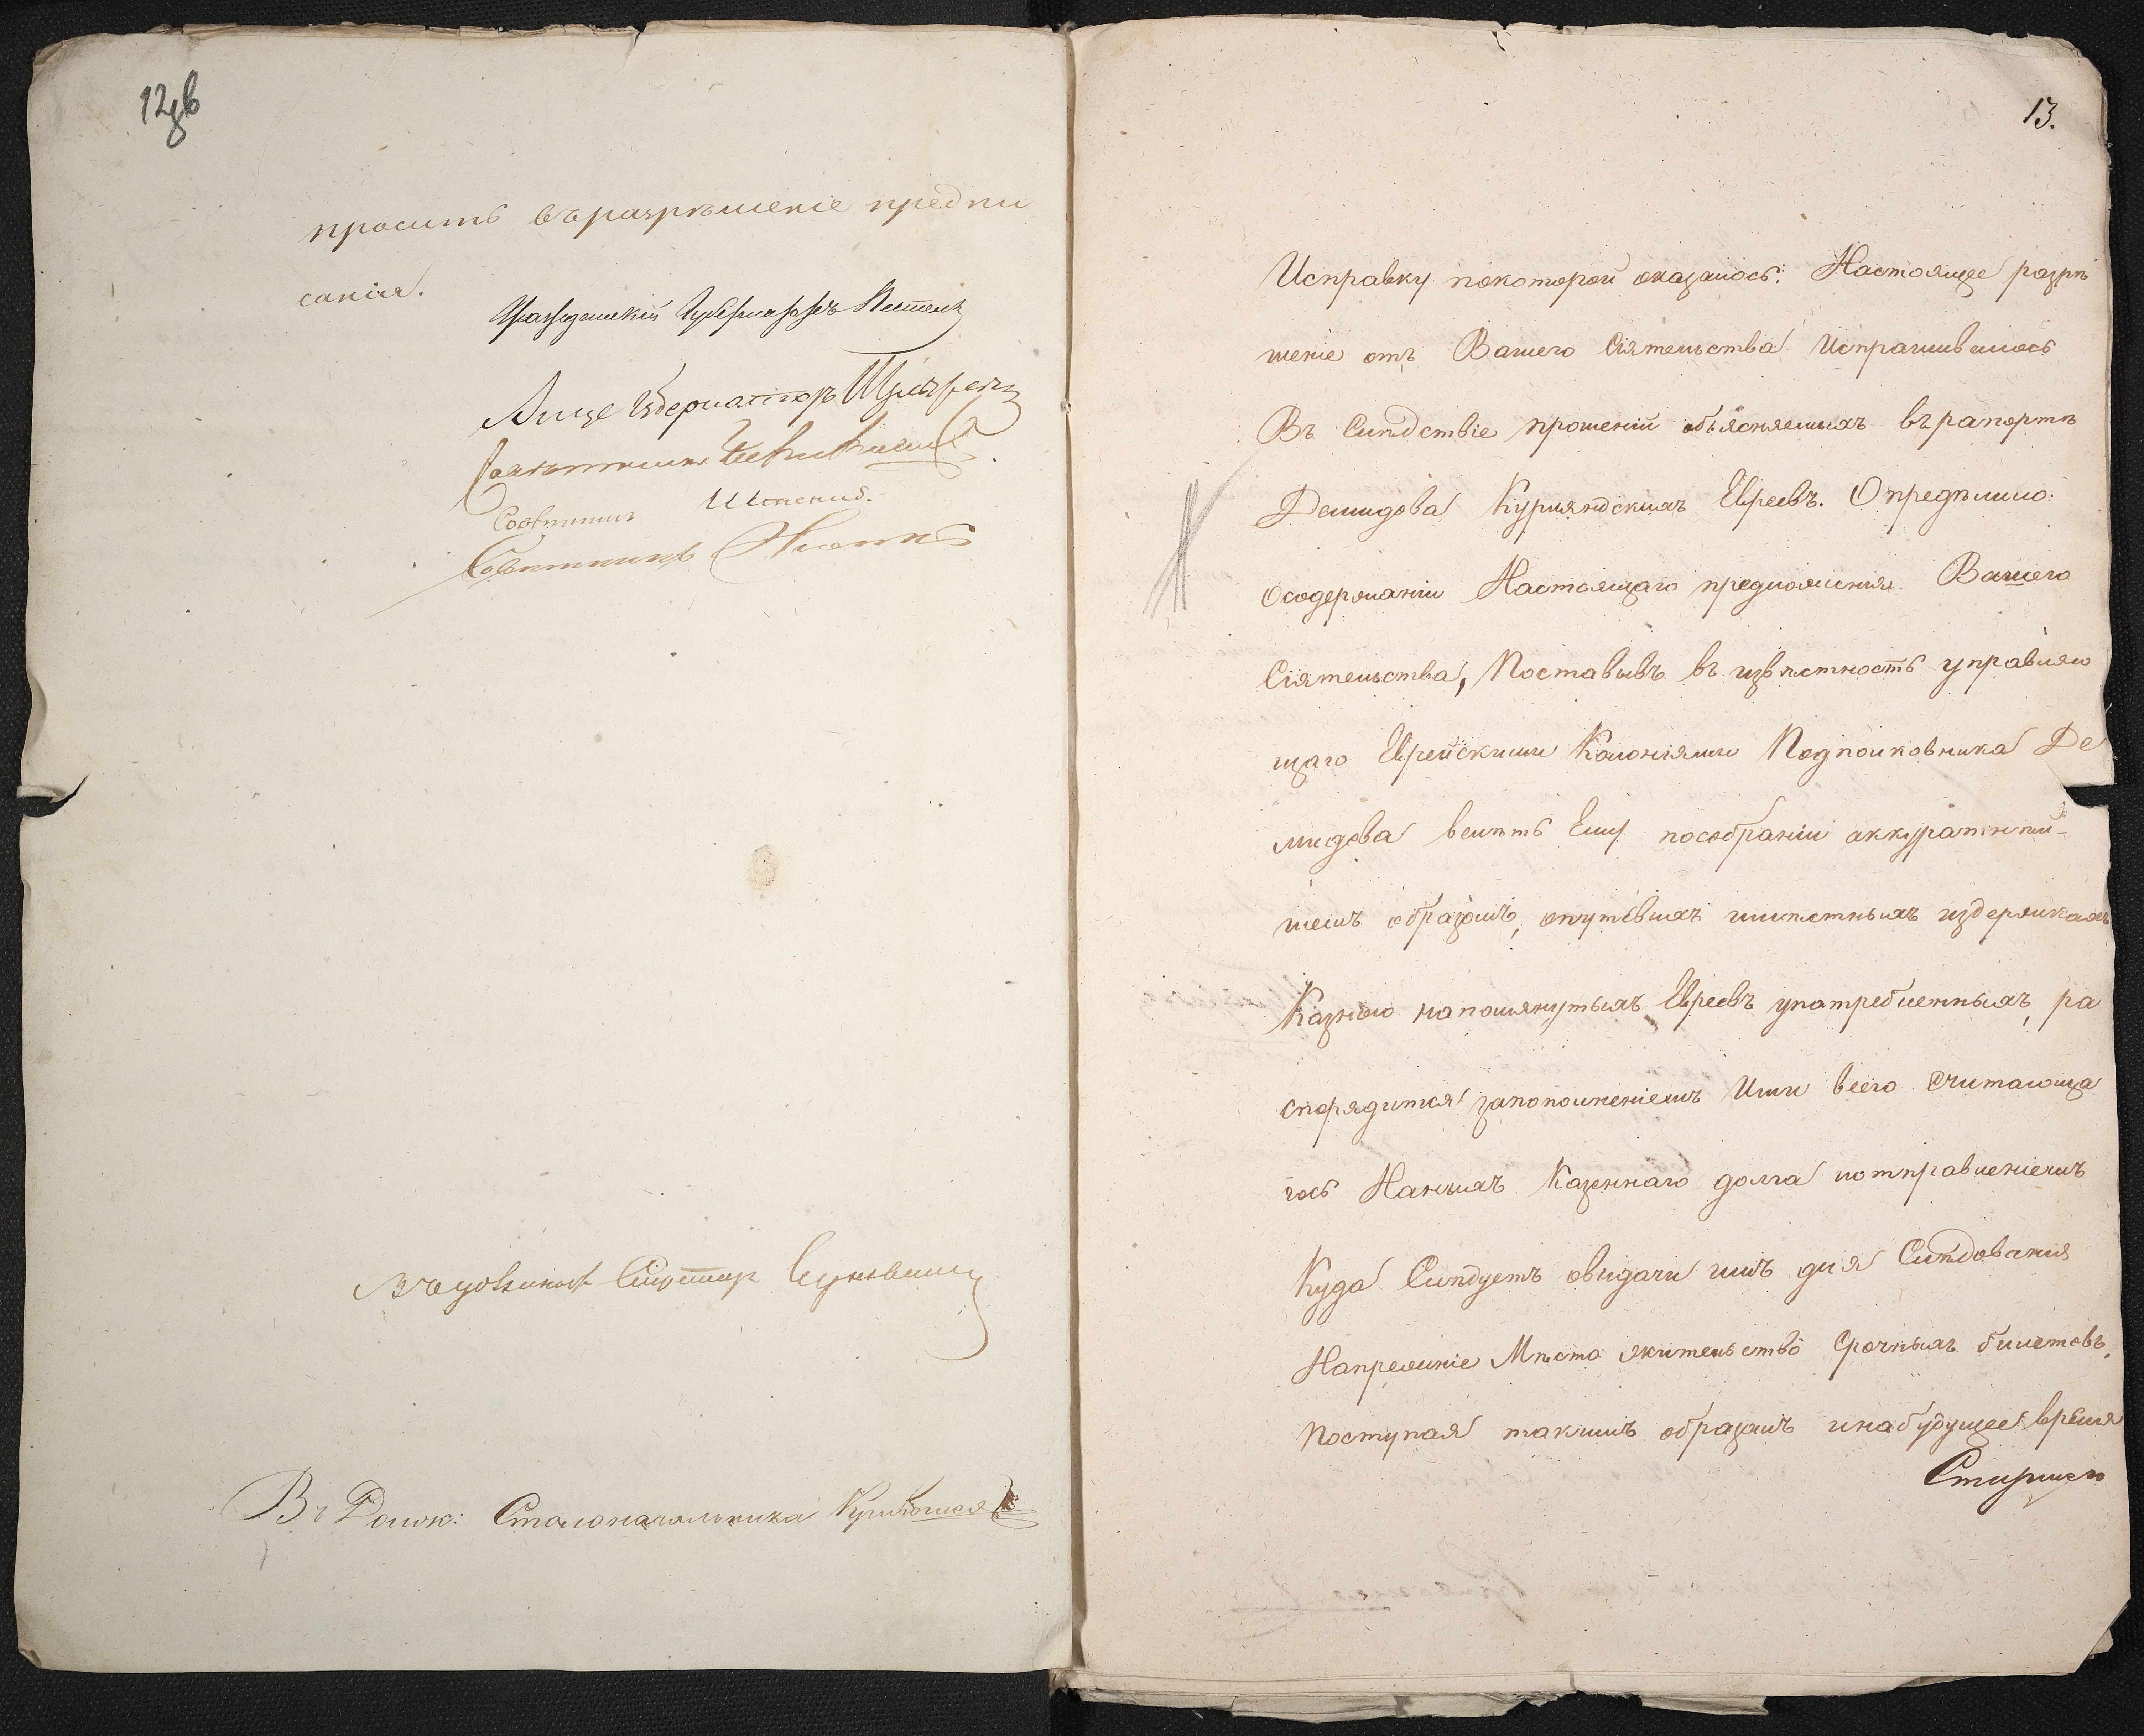 12об
проситъ въ разрѣшеніе предпи
санія.
Гражданскій Губернаторъ Пестель
Вице Губернаторъ
Совѣтникъ
Совѣтникъ
Совѣтникъ
Секретарь
Въ Долж: Столоначальника
13.
Исправку покоторой оказалось: Настоящее разрѣ
шеніе отъ Вашего Сіятельства Испрашивалось
Въ Слѣдствіе прошеній объясняемыхъ върапортѣ
Демидова Курляндскихъ Евреевъ. Опредѣлило:
Осодержаніи Настоящаго предложенія Вашего
Сіятельства, Поставивъ въ извѣстность управляю
щаго Еврейскими Колоніями Подполковника Де
мидова велѣть Ему пособраніи аккуратнѣй-
шемъ образомъ, опутевыхъ издержкахъ
Казною напомянутыхъ Евреевъ употребленныхъ, ра
спорядится запополненіемъ Ими всего считающа
гось Нанихъ Казеннаго долга иотправленіемъ
Куда Слѣдуетъ овыдачи имъ для Слѣдованія
Напрежніе Мѣста жительство Срочныхъ билетовъ,
Поступая такимъ образомъ инабудущее время